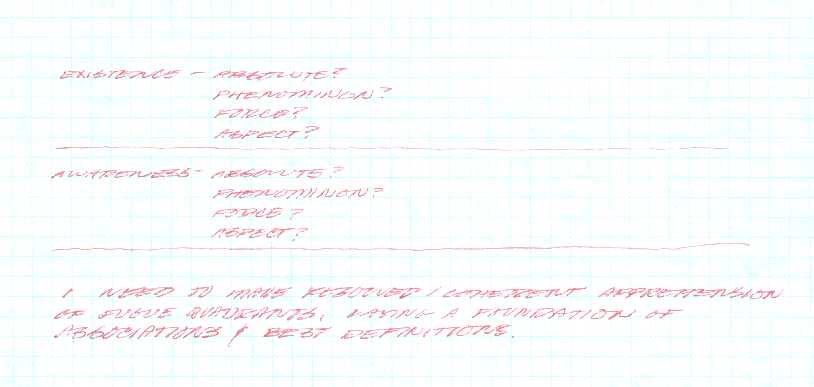 EXISTENCE - ABSOLUTE?
PHENOMINON?
FORCE?
ASPECT?
AWARENESS - ABSOLUTE?
PHENOMINON?
FORCE?
ASPECT?
I NEED TO MAKE RESOLVED / COHERENT APPREHENSION
OF QUADRANTS, LAYING A FOUNDATION OF
ASSOCIATIONS & BEST DEFINITIONS.